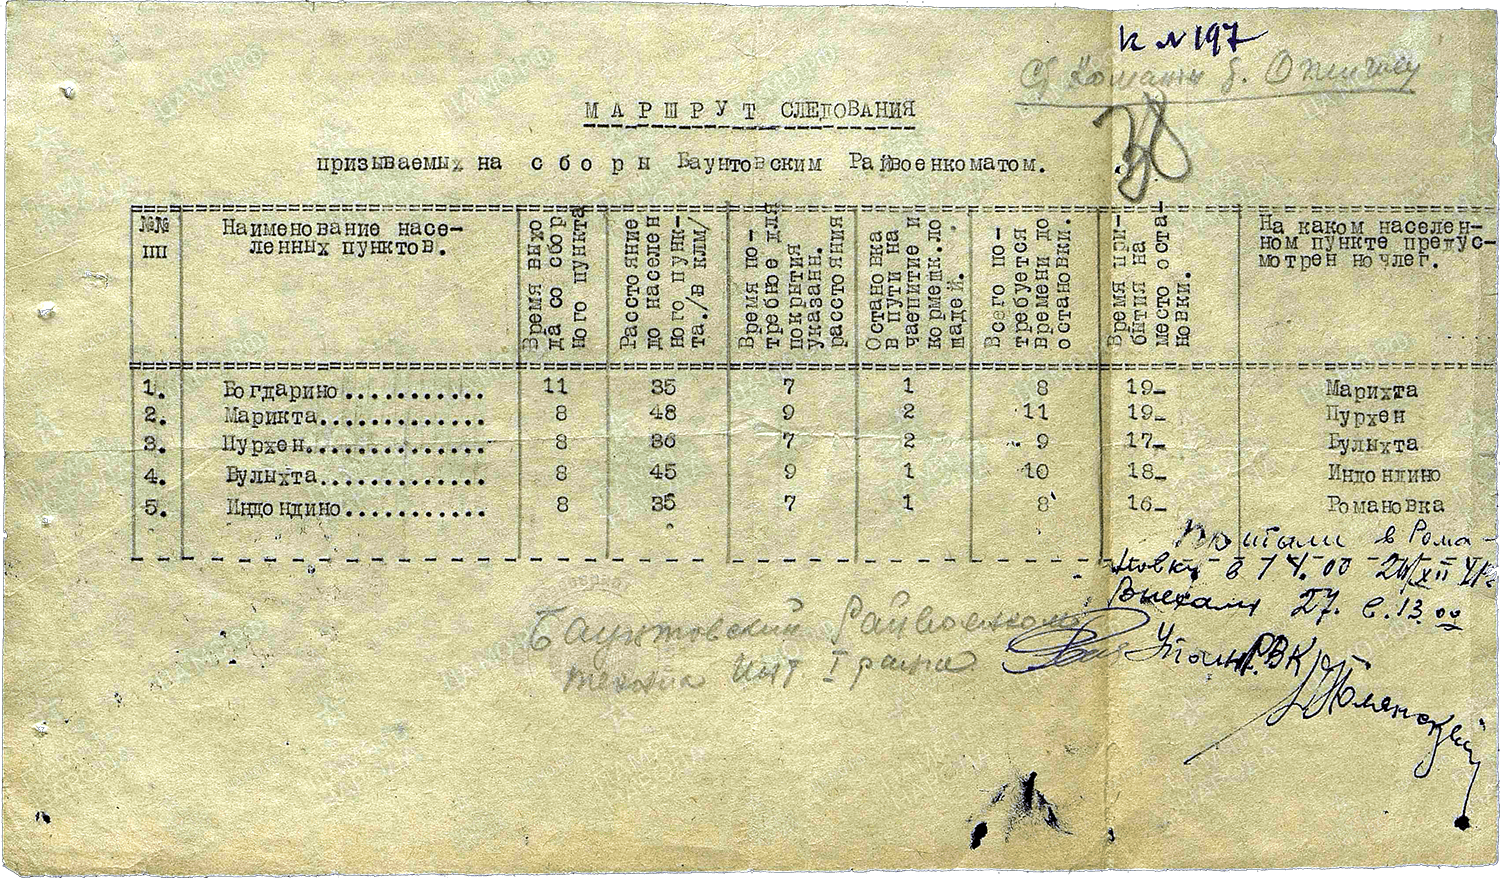 к №197
38
МАРШРУТ СЛЕДОВАНИЯ
призываемых на сборы Баунтовским Райвоенкоматом.
№№ пп
Наименование насе-
ленных пунктов.
Время выхо
да со сбор
ного пункта
Расстояние
до населен
ного пунк-
та./в клм/
Время по-
требное для
покрытия
указанн.
расстояния
Остановка
в пути на
чаепитие и
кормешк.ло
шадей.
Всего по-
требуется
времени до
остановки.
Время при-
бытия на
место оста-
новки.
На каком населен-
ном пункте предус-
мотрен ночлег.
1. Богдарино............ 11 35 7 1 8 19- Марихта
2. Марикта.............. 8 48 9 2 11 19- Пурхен
3. Пурхен............... 8 36 7 2 9 17- Булыхта
4. Булыхта.............. 8 45 9 1 10 18- Индондино
5. Индондино............ 8 35 7 1 8 16- Романовка
в Рома-
новку в 14.00
Выехали 27. в 13 00
Баунтовский Райвоенком
техник инт. I ранга
РВК